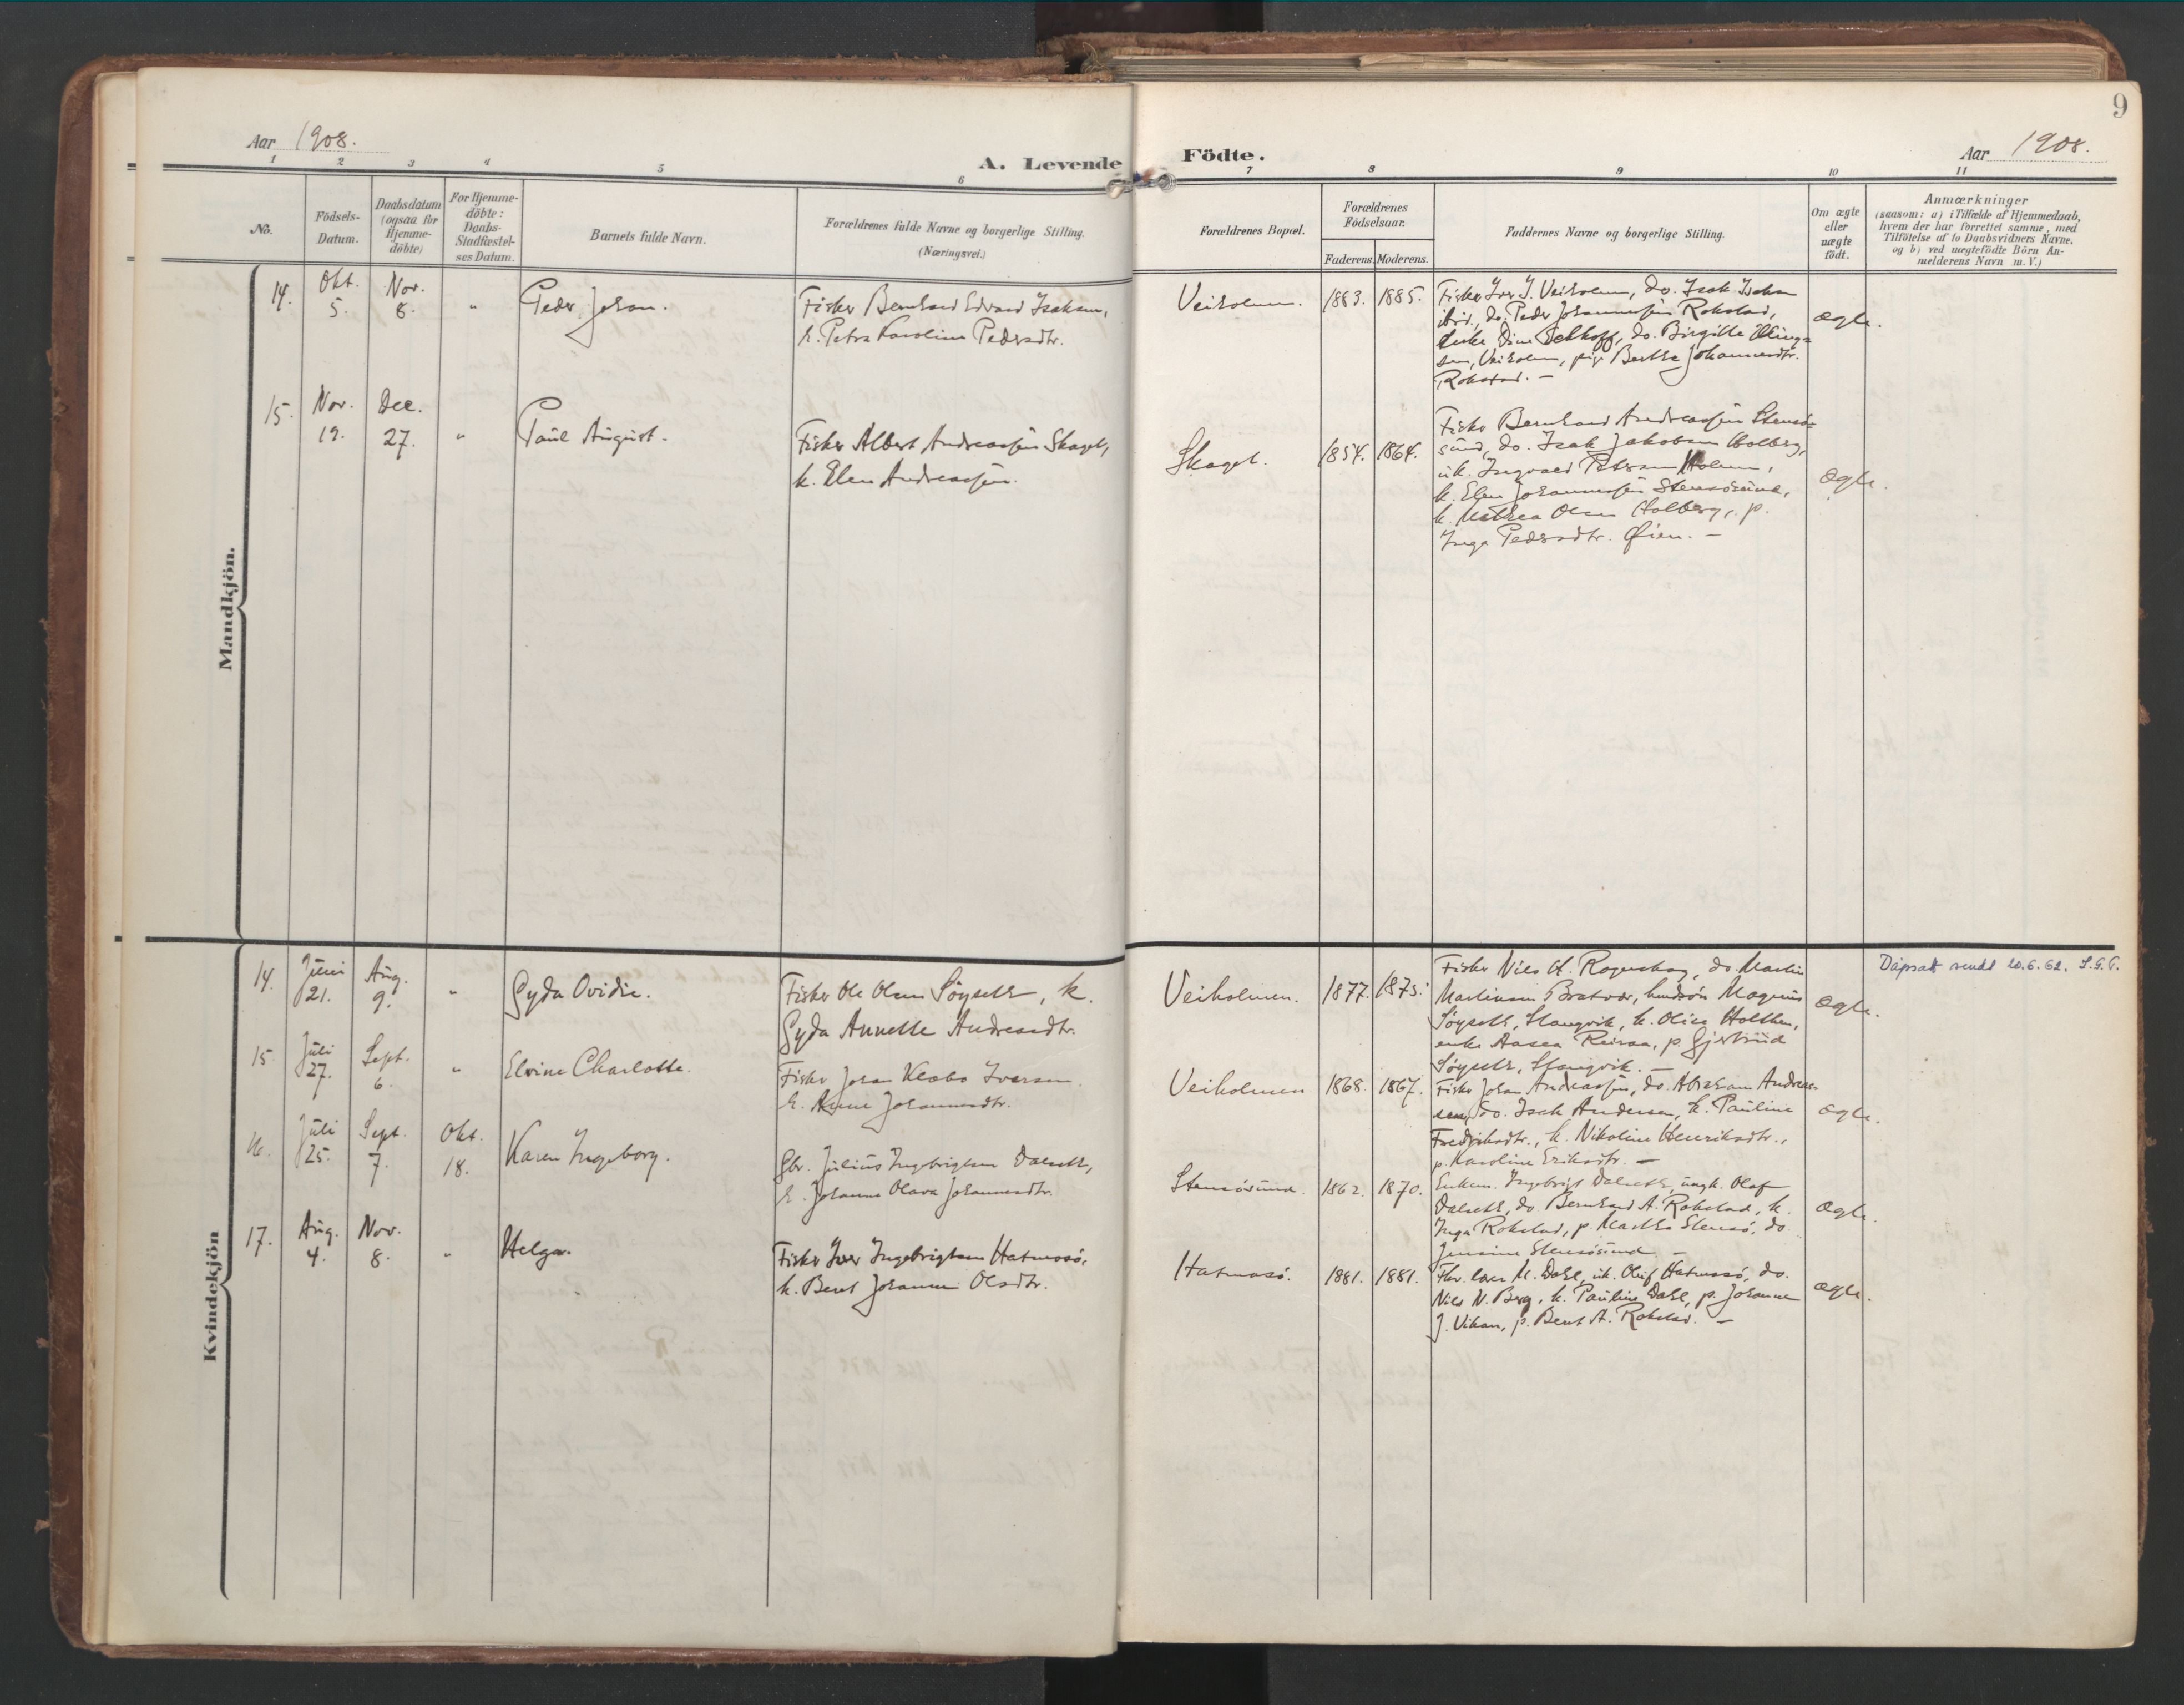 9
Aar 1908.
A. Levende Födte.
Aar 1908.
1 2 3 4 5 6 7 8 9 10 11
No.
Födsels-
Datum.
Daabsdatum
(ogsaa for
Hjemme-
döbte)
For Hjemme-
döbte:
Daabs-
Stadfæstel-
ses Datum.
Barnets fulde Navn.
Forældrenes fulde Navne og borgerlige Stilling.
(Næringsvei.)
Forældrenes Bopæl.
Forældrenes
Födselsaar.
Faderens. Moderens.
Faddernes Navne og borgerlige Stilling.
Om ægte
eller
uægte
födt.
Anmærkninger
(saasom: a) i Tilfælde af Hjemmedaab,
hvem der har forrettet samme, med
Tilföielse af to Daabsvidners Navne,
og b) ved uægtefödte Börn An-
melderens Navn m. V.)
Mandkjön.
14.
Okt.
5.
Nov.
8.
"
Peder Johan.
Fisker Bernhard Edvard Isaksen,
h. Petra Karoline Pedersdtr.
Veiholmen.
1883. 1885.
Fisker Iver J. Veiholmen, do. Isak Isaksen
ibid., do. Peder Johannessen Rokstad,
enke Dina , do. Birgitte
sen, Veiholmen, pige Berthe Johannesdtr.
Rokstad. —
ægte.
15.
Nov.
19.
Dec.
27.
"
Paul August.
Fisker Albert Andreassen Skaget,
h. Elen Andreassen.
Skaget.
1854. 1864.
Fisker Bernhard Andreassen Stensö-
sund, do. Isak Jakobsen Holberg,
uk. Ingvald Petersen Holmen,
h. Elen Johannessen Stensösund,
h. Olsen Holberg, p.
Inga Pedersdtr. Øien. —
ægte.
Kvindekjön
14.
Juni
21.
Aug.
9.
"
Gyda Ovidie.
Fisker Ole Olsen Söyseth, h.
Gyda Annette Andreasdtr.
Veiholmen.
1877. 1875.
Fisker Nils H. , do. Martin
Martinsen Bratvær, Magnus
Söyseth, Stangvik, h. Olise Holthen,
enke Aasea , p. Gjertrud
Söyseth, Stangvik. —
ægte.
Dåpsatt sendt 20.6.62. S.G.T.
15
Juli
27.
Sept.
6.
"
Elvine Charlotte.
Fisker Johan Klæbo Iversen
h. Anne Johannesdtr.
Veiholmen
1868. 1867.
Fisker Johan Andreassen, do. Abraham Andreas-
sen, do. Isak Andersen, h. Pauline
Fredriksdtr., h. Nikoline Henriksdtr.,
p. Karoline Eriksdtr. —
ægte.
16.
Juli
25.
Sept.
7.
Okt.
18.
Karen Ingeborg.
Gbr. Julius Ingebrigtsen Dalseth,
h. Johanne Olava Johannesdtr.
Stensösund.
1862. 1870.
Enkem. Ingebrigt Dalseth, ungk. Olaf
Dalseth, do Bernhard A. Rokstad, h.
Inga Rokstad, p. Martha Stensö, do.
Jensine Stensösund. —
ægte.
17.
Aug.
4.
Nov.
8.
"
Helga.
Fisker Iver Ingebrigtsen Hatmosö,
h. Beret Johanna Olsdtr.
Hatmosö.
1881. 1881.
M. Dahl, uk. Oluf Hatmosö, do.
Nils N. Berg, h. Pauline Dahl, p. Johanne
J. Vikan, p. Beret A. Rokstad. —
ægte.